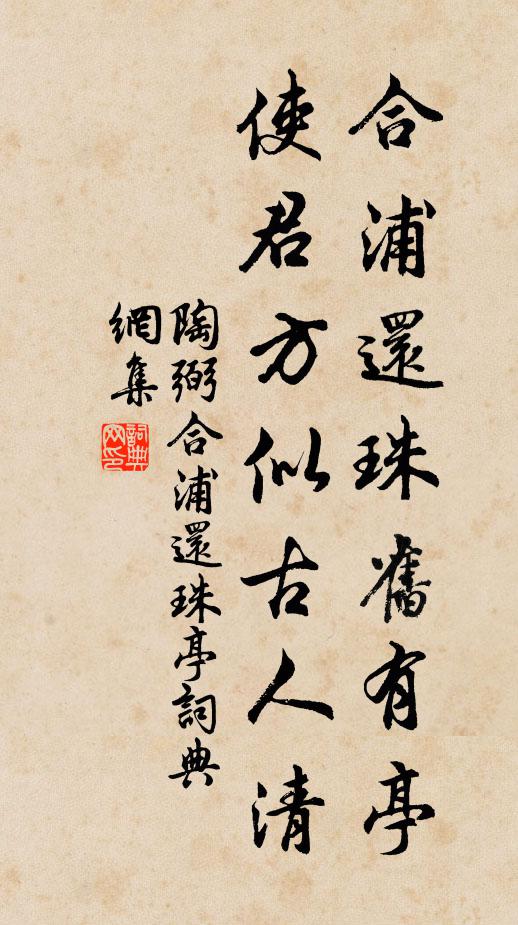 合浦還珠舊有亭
使君方似古人清
陶弼合浦還珠亭詞典
網集
詞典
網印